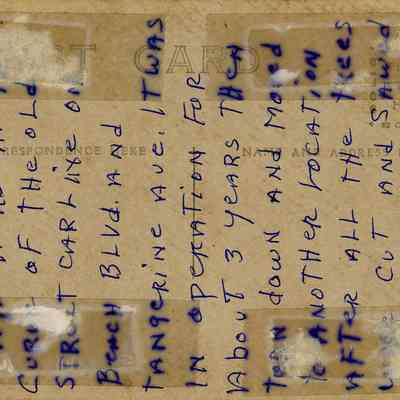 ST CARD
RESPONDENCE HERE
NAME AND ADDRESS
CURVE OF THE OLD
STREET CAR LINE ON
BEACH BLVD. AND
TANGERINE AVE. IT WAS
IN OPERATION FOR
ABOUT 3 YEARS THEN
TORN DOWN AND MOVED
TO ANOTHER LOCATION
AFTER ALL THE TREES
WERE CUT AND SAWED